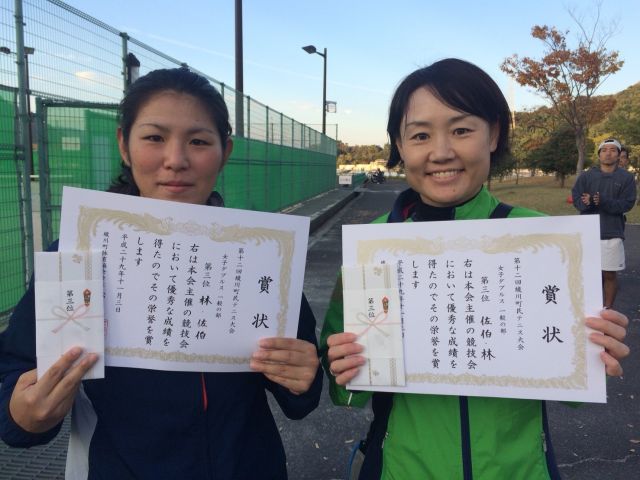 賞状
第十二回綾川町民テニス大会
女子ダブルス 一般の部
第三位 林 佐伯
右は本会主催の競技会
において優秀な成績を
得たのでその栄誉を賞
します
平成二十九年十一月三日
第三位
賞状
第十二回綾川町民テニス大会
女子ダブルス 一般の部
第三位 佐伯・林
右は本会主催の競技会
において優秀な成績を
得たのでその栄誉を賞
します
平成二十九年十
第三位